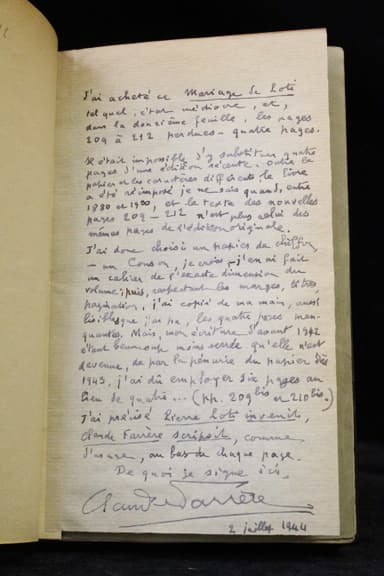 J'ai acheté ce Mariage de Loti
tel quel, état médiocre, et,
dans la douzième feuille, les pages
209 à 212 perdues – quatre pages.
Il était impossible d'y substituer quatre
pages d'une édition récente. Outre le
papier et les caractères différents le livre
a été réimposé je ne sais quand, entre
1880 et 1900, et le texte des nouvelles
pages 209 – 212 n'est plus celui des
mêmes pages de l'édition originale.
J'ai donc choisi un papier de chiffon
– un Canson, je crois – j'en ai fait
un cahier de l'exacte dimension du
volume; puis, respectant les marges,
pagination, j'ai copié de ma main, aussi
lisible que j'ai pu, les quatre pages man-
quantes. Mais, mon écriture d'avant
étant beaucoup moins qu'elle n'est
devenue, de par la pénurie du papier dès
1943, j'ai dû employer six pages au
lieu de quatre... (pp. 209 bis et 210 bis.)
J'ai précisé Pierre Loti invenit,
Claude Farrère scripsit, comme
d'usage, au bas de chaque page.
De quoi je signe ici,
Claude Farrère
2 juillet 1944